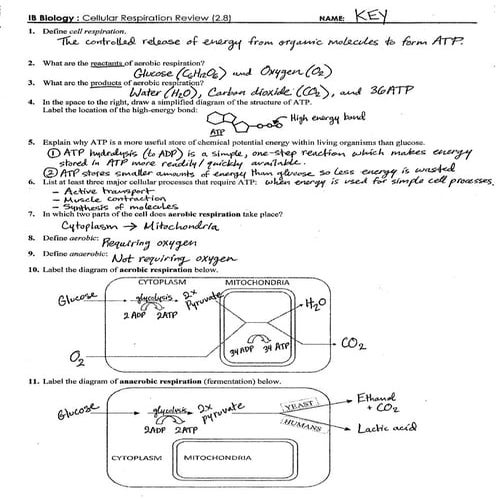 IB Biology : Cellular Respiration Review (2.8) NAME: KEY
1. Define cell respiration.
The controlled release of energy from organic molecules to form ATP.
2. What are the reactants of aerobic respiration?
Glucose (C6H12O6) and Oxygen (O2)
3. What are the products of aerobic respiration?
Water (H2O), Carbon dioxide (CO2), and 36 ATP
4. In the space to the right, draw a simplified diagram of the structure of ATP.
Label the location of the high-energy bond:
High energy bond
ATP
5. Explain why ATP is a more useful store of chemical potential energy within living organisms than glucose.
① ATP hydrolysis (to ADP) is a simple, one-step reaction which makes energy
stored in ATP more readily/quickly available.
② ATP stores smaller amounts of energy than glucose so less energy is wasted
when energy is used for simple cell processes.
6. List at least three major cellular processes that require ATP:
- Active transport
- Muscle contraction
- Synthesis of molecules
7. In which two parts of the cell does aerobic respiration take place?
Cytoplasm → Mitochondria
8. Define aerobic: Requiring oxygen
9. Define anaerobic: Not requiring oxygen
10. Label the diagram of aerobic respiration below.
CYTOPLASM MITOCHONDRIA
Glucose glycolysis 2x Pyruvate H2O
2 ADP 2 ATP
34 ADP 34 ATP CO2
O2
11. Label the diagram of anaerobic respiration (fermentation) below.
Glucose glycolysis 2x pyruvate YEAST Ethanol + CO2
2 ADP 2 ATP HUMANS Lactic acid
CYTOPLASM MITOCHONDRIA